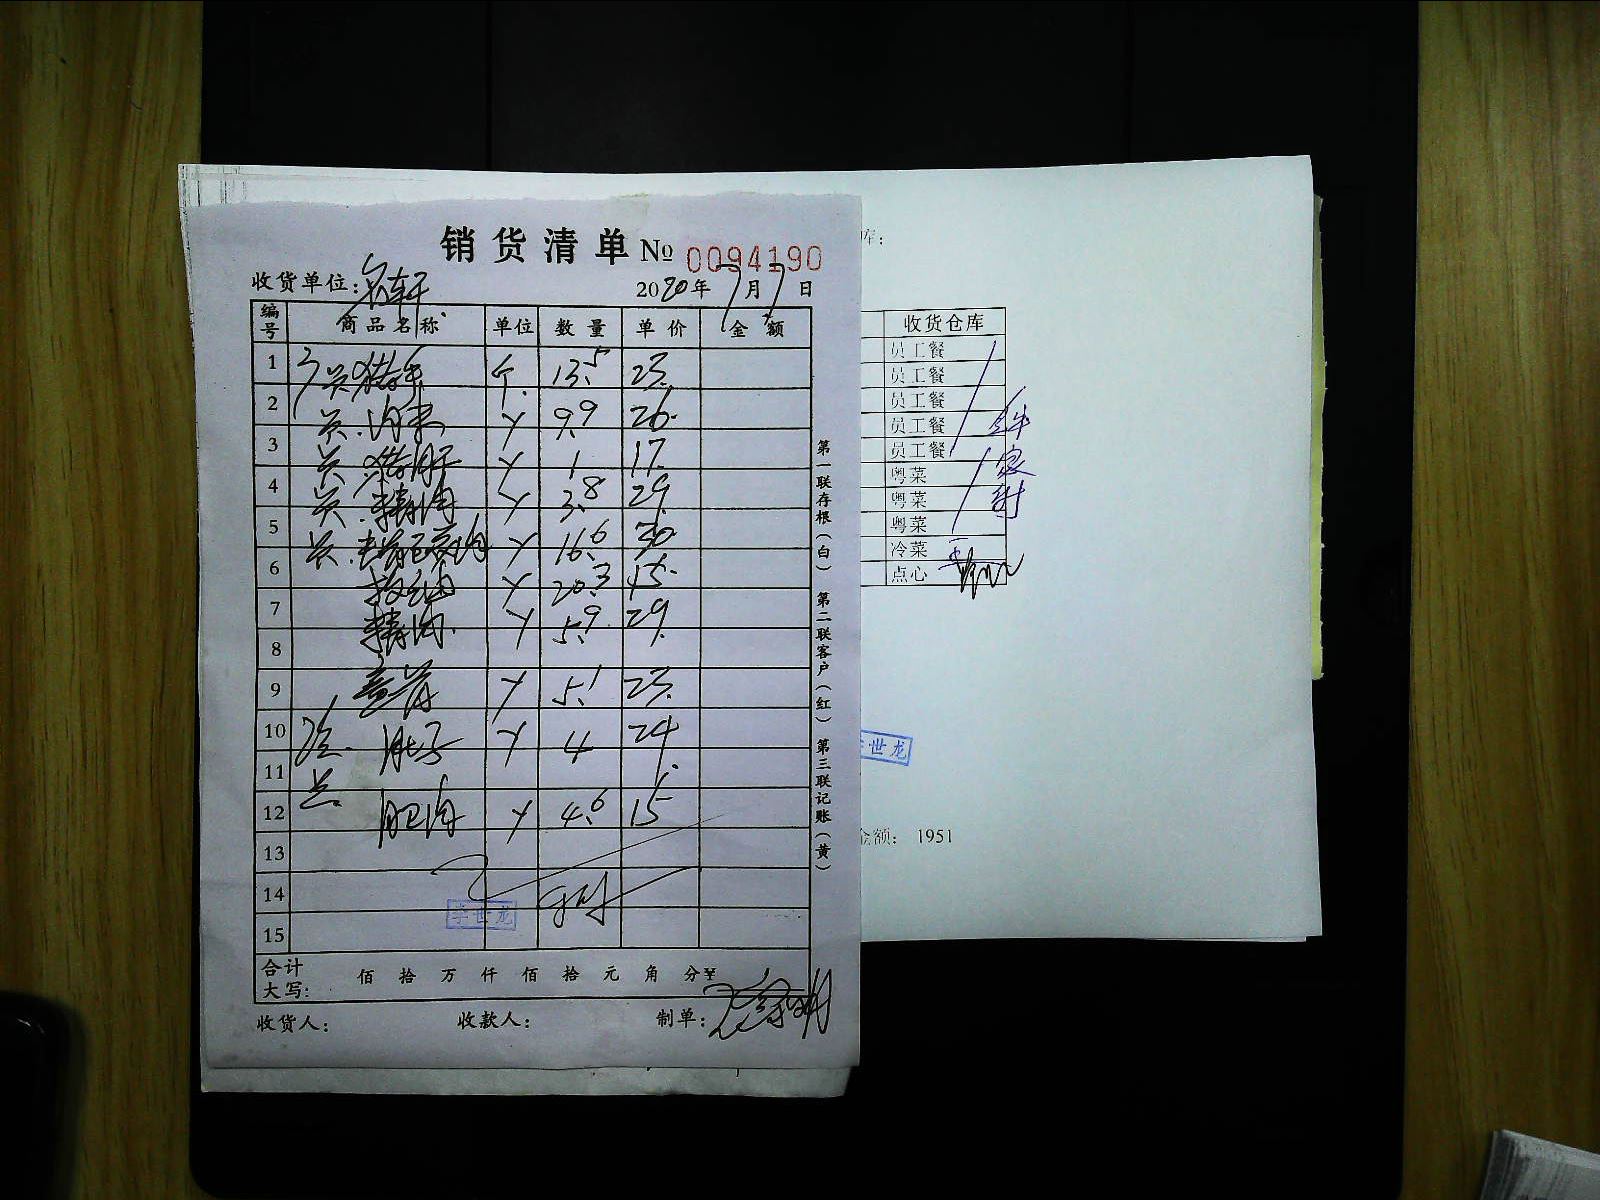 销货清单 № 0094190
收货单位: 名轩 2020年7月7日
编号 商品名称 单位 数量 单价 金额
1 员 猪手 个 13.5 23.
2 员. 肉末 9.9 26.
3 员. 猪肝 1 17.
4 员. 精肉 3.8 29.
5 员. 16.6 30.
6 20.3 15.
7 精肉. 5.9 29.
8
9 5.1 23.
10 冷. 肚子 4 24.
11 点.
12 肥肉 4.6 15
13
14
15
李世龙
合计大写: 佰 拾 万 仟 佰 拾 元 角 分
收货人: 收款人: 制单:
第一联存根(白) 第二联客户(红) 第三联记账(黄)
库:
收货仓库
员工餐
员工餐
员工餐
员工餐
员工餐
粤菜
粤菜
粤菜
冷菜
点心
李世龙
金额: 1951